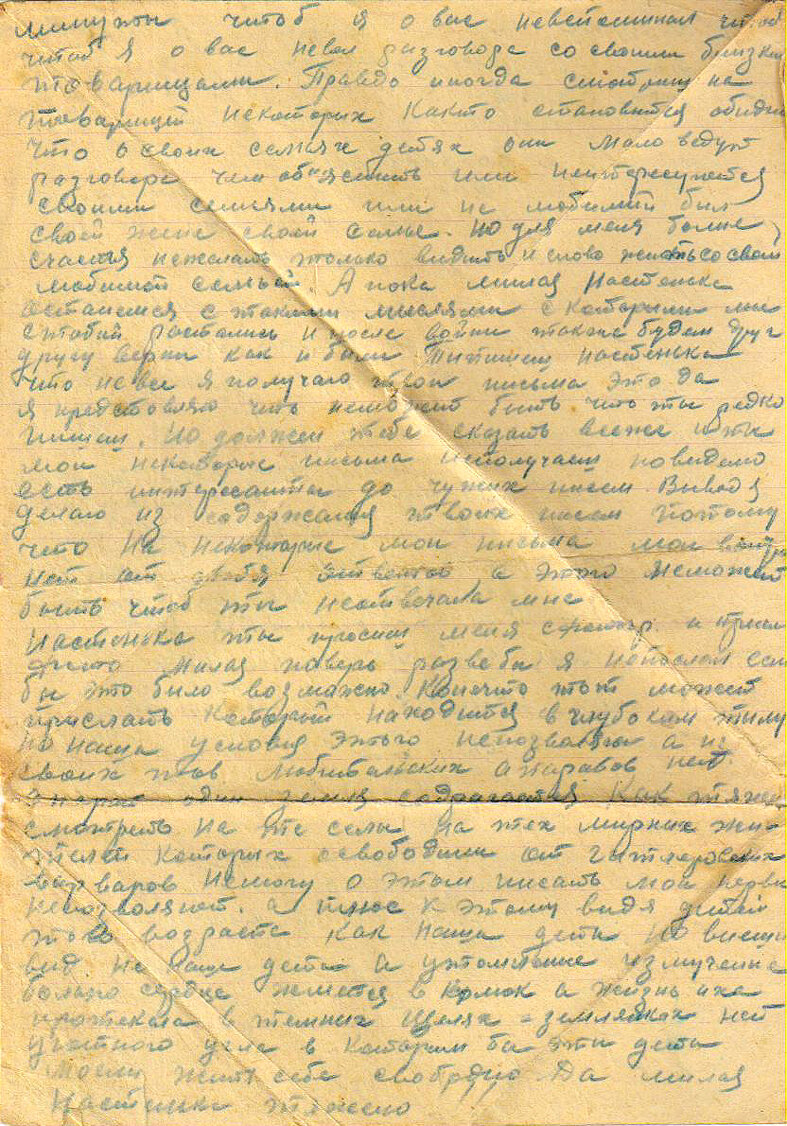 минуты чтоб я о вас невспоминал чтоб
чтоб я о вас невел разговора со своими близким
товарищами. Правдо иногда смотриш на
товарищей некоторых както становится обидно
что о своих семьях детях они мало ведут
разговора чем об"яснить или неинтересуются
своими семьями или не любимый был
своей жене своей семье. но для меня более
счастья нежелать только видить и снова жить со своей
любимой семьей. А пока милая Настенька
останемся с такими мыслями с которыми мы
с тобой растались и после войны также будем друг
другу верны как и были Ты пишеш настенька
что не все я получаю твои письма это да
я представляю что неможет быть что ты редко
пишеш. но должен тебе сказать все же и ты
мои некоторые письма неполучаеш повидемо
есть интересанты до чужих писем. Вывод
делаю из содержания твоих писем потому
что на некоторые мои письма мои
нет от тебя ответов а этого неможет
быть чтоб ты неотвечала мне
Настенька ты просиш меня
фото милая поверь разве бы я непослал если
бы это было возможно. Конечно тот может
прислать который находится в глубоким тылу
но наша условия этого непозволяют а из
своих тов любительских апаратов нет.
один земля содрагается как тяжело
смотреть на те села на тех мирных жи-
телей которых освободили от гитлеровских
варваров немогу о этом писать мои нервы
непозволяют. а плюс к этому видя детей
того возраста как наша дети но внешн
вид не наше дети а утомленые измученые
больно сердце жмется в комок а жизнь их
протекала в темних щелях = землянках нет
уютного угла в котором бы эти дети
могли жить себе свободно Да милая
Настенька тяжело